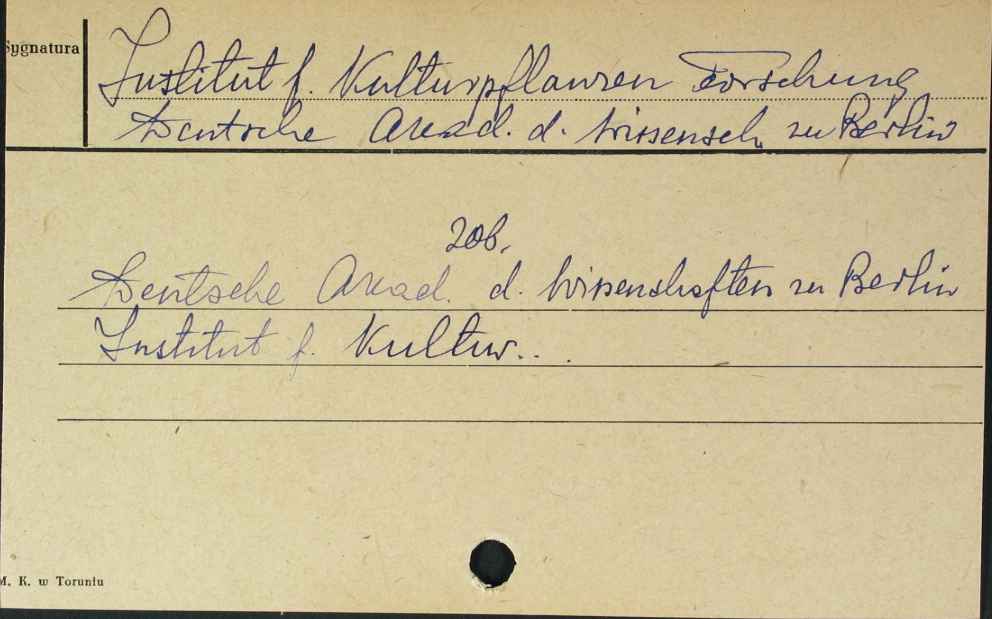 Sygnatura
Institut f. Kulturpflanzen Forschung
Deutsche Akad. d. Wissensch. zu Berlin
zob.
Deutsche Akad. d. Wissenschaften zu Berlin
Institut f. Kultur...
M. K. w Toruniu